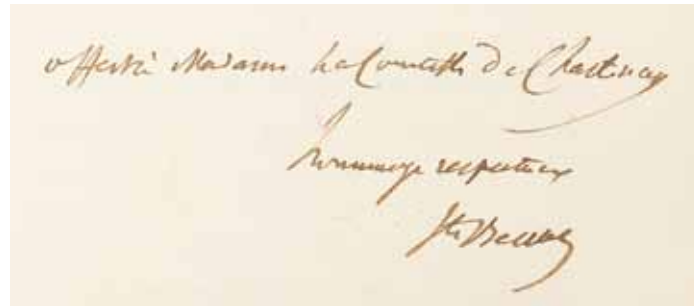 offert à Madame La Comtesse De Chastenay
hommage respectueux
Ste Beuve